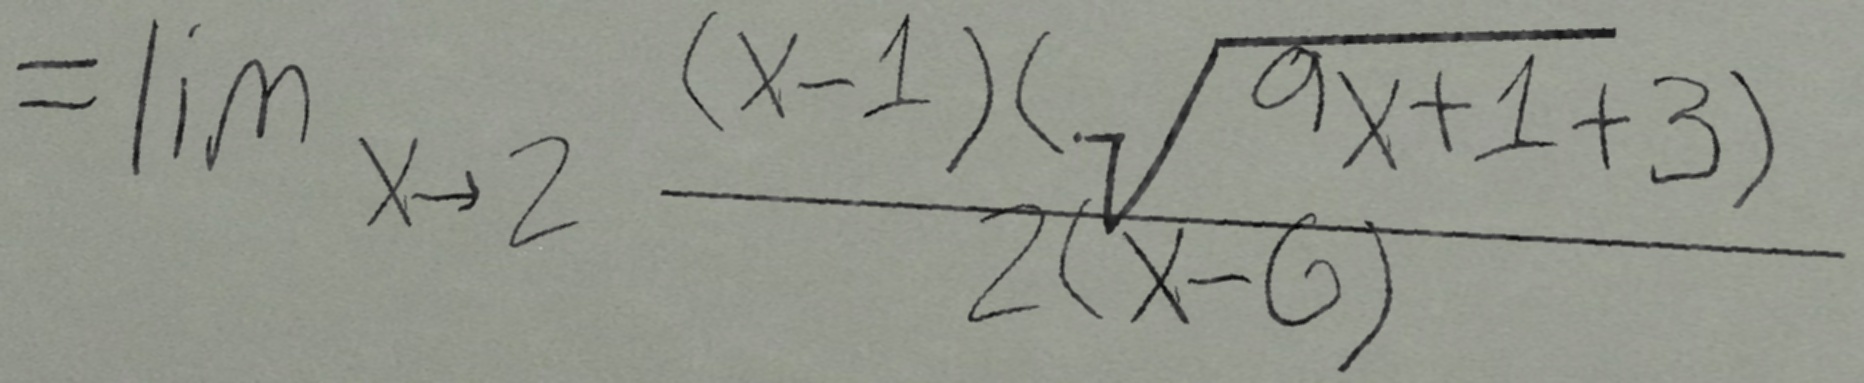 = lim_{x→2} \frac{(x-1)(\sqrt{9x+1}+3)}{2(x-6)}